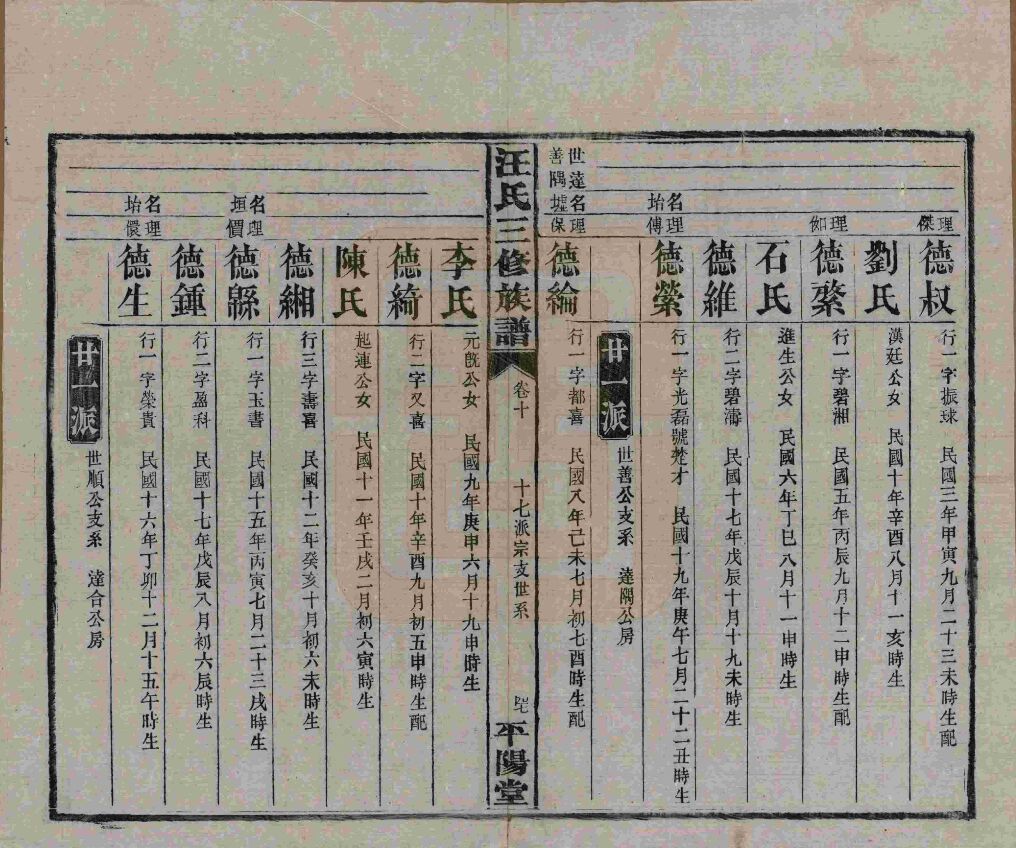 理傑
德叔
行一字振球　民國三年甲寅九月二十三未時生配
劉氏
漢廷公女　民國十年辛酉八月十一亥時生
理如
德繁
行一字碧湘　民國五年丙辰九月十二申時生配
石氏
進生公女　民國六年丁巳八月十一申時生
德維
行二字碧濤　民國十七年戊辰十月十九未時生
名坮
理傅
德縈
行一字光磊號楚才　民國十九年庚午七月二十二丑時生
廿一派
世善公支系　達隅公房
世達名理
善隅墟保
德綸
行一字都喜　民國八年己未七月初七酉時生配
汪氏三修族譜
卷十
十七派宗支世系
平陽堂
李氏
元旣公女　民國九年庚申六月十九申時生
德綺
行二字又喜　民國十年辛酉九月初五申時生配
陳氏
起連公女　民國十一年壬戌二月初六寅時生
德緗
行三字壽喜　民國十二年癸亥十月初六未時生
名垣
理價
德緜
行一字玉書　民國十五年丙寅七月二十三戌時生
德鍾
行二字盈科　民國十七年戊辰八月初六辰時生
名坮
理儇
德生
行一字榮貴　民國十六年丁卯十二月十五午時生
廿一派
世順公支系　達合公房